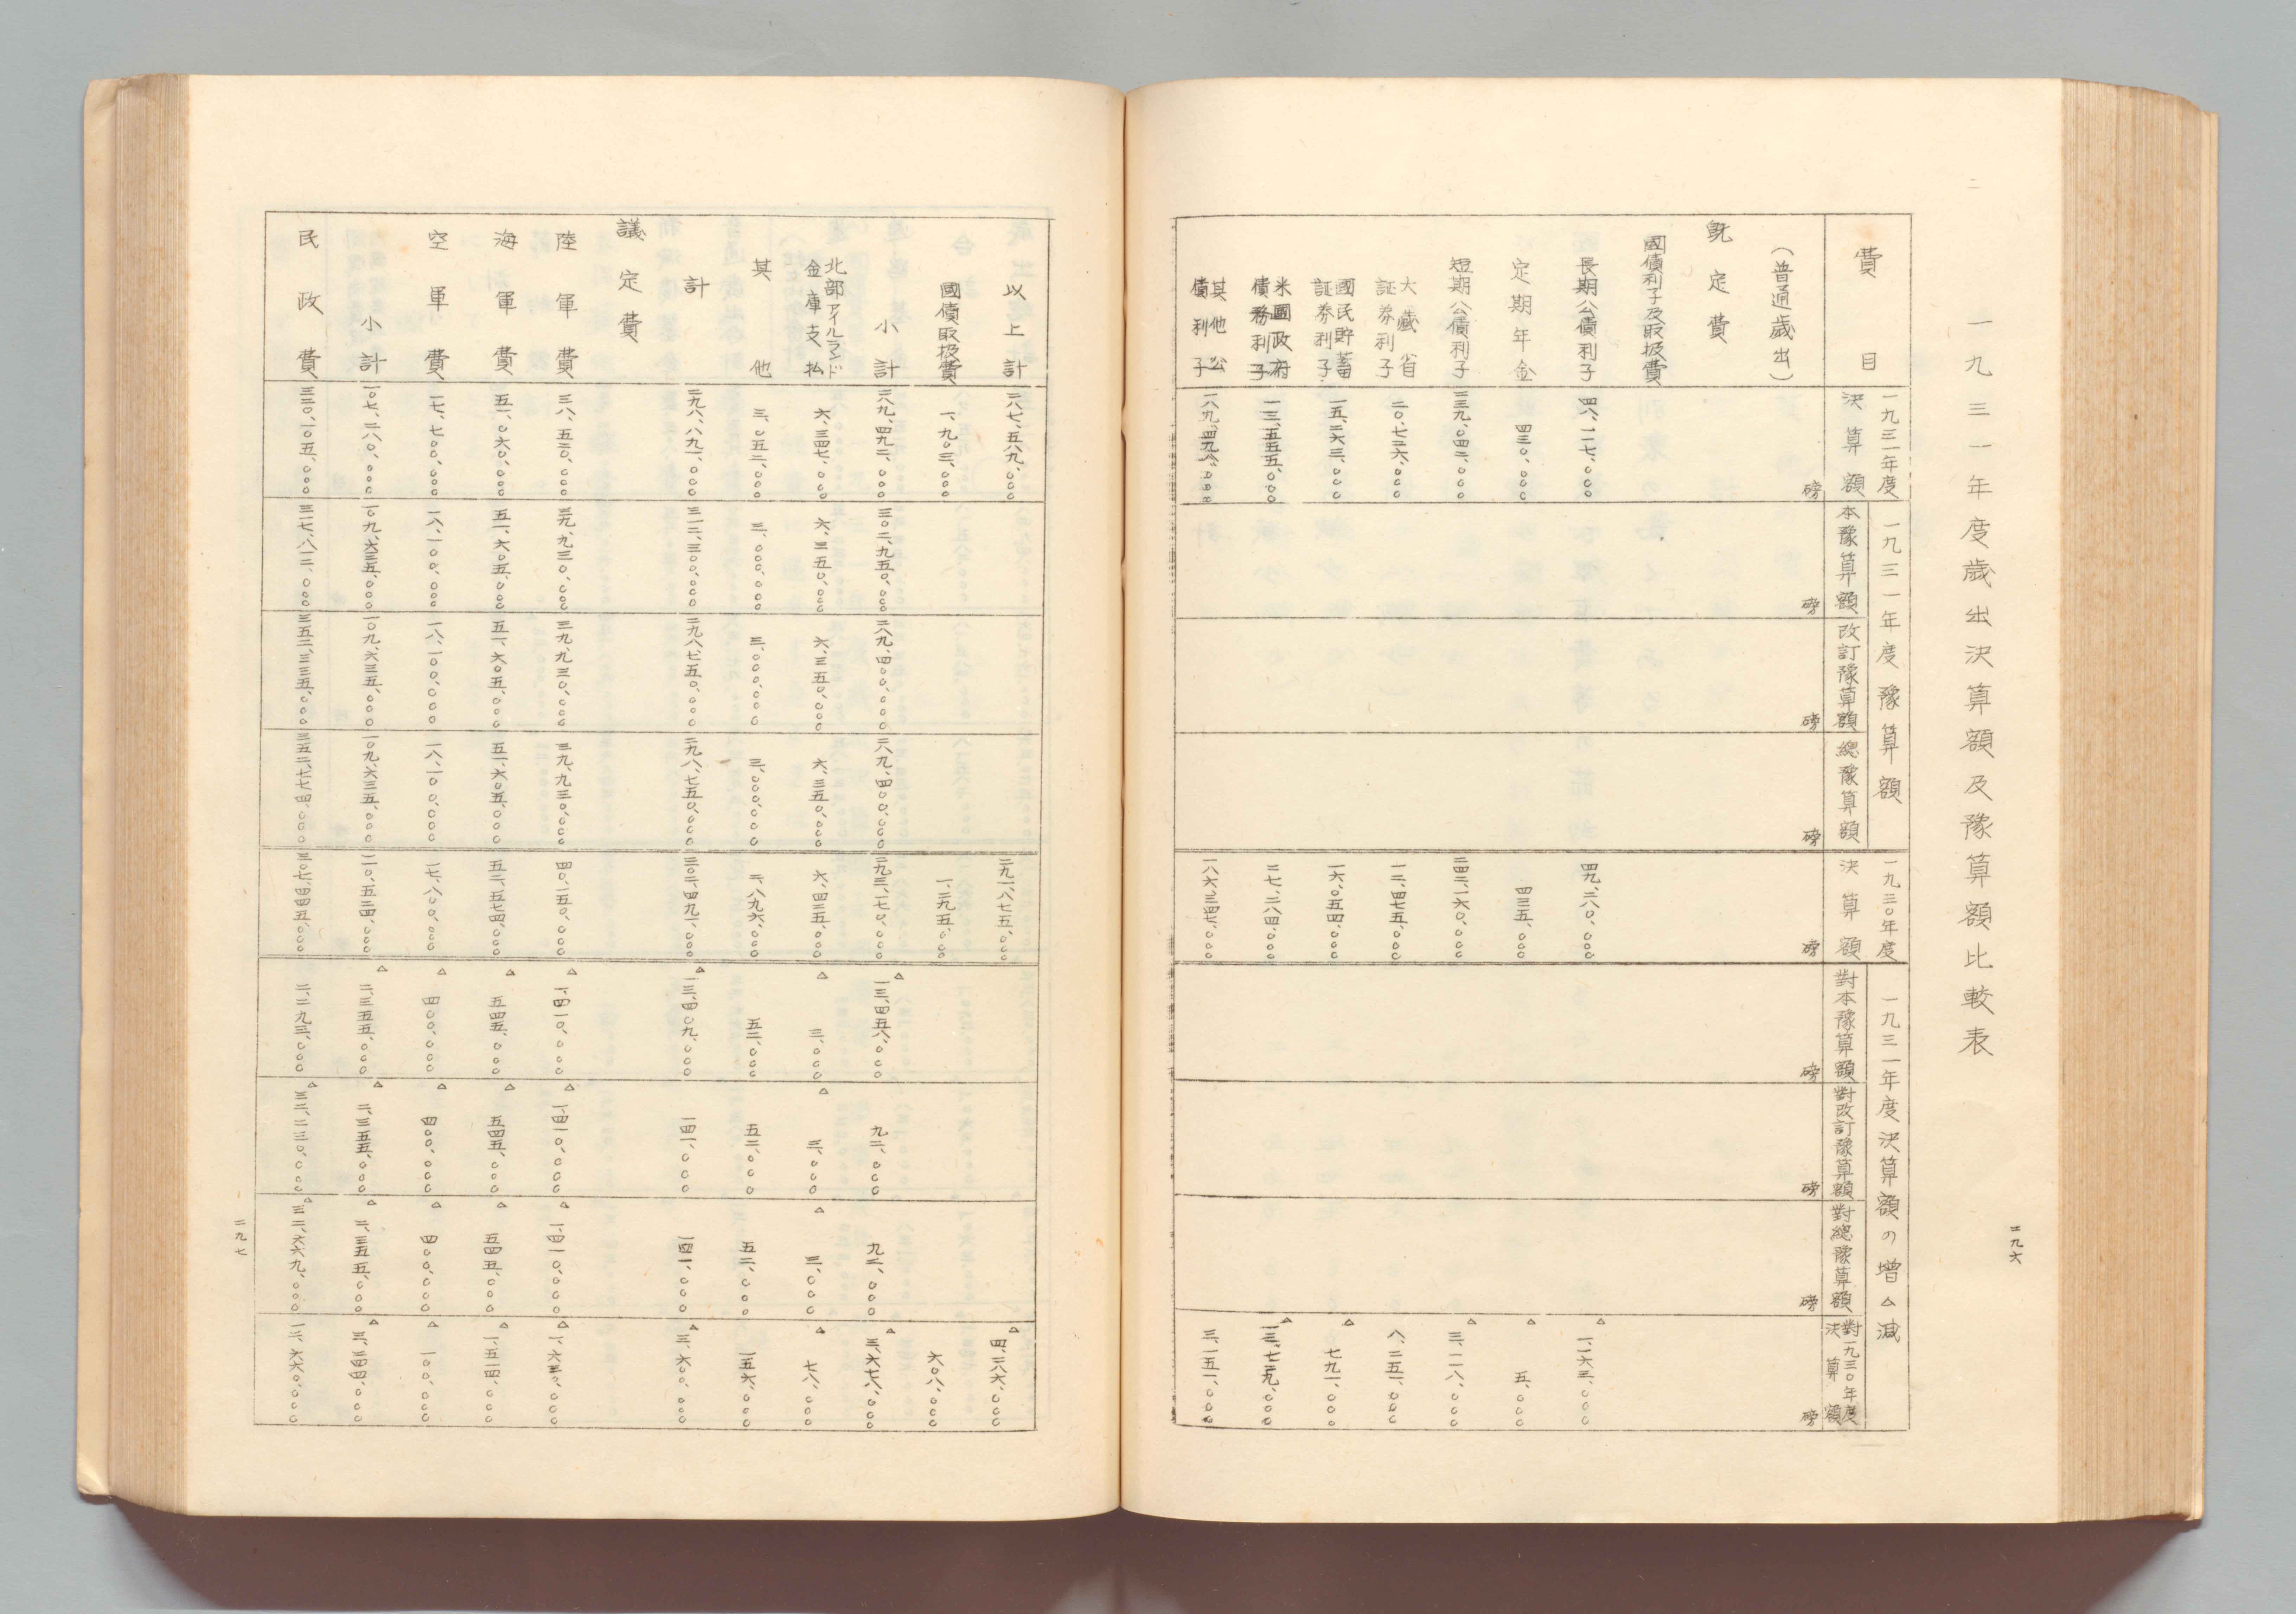 二九六
一九三一年度歳出決算額及豫算額比較表
費目
一九三一年度
決算額
一九三一年度豫算額
本豫算額
改訂豫算額
總豫算額
一九三〇年度
決算額
一九三一年度決算額の増△減
對本豫算額
對改訂豫算額
對總豫算額
對一九三〇年度
決算額
(普通歳出) 磅 磅 磅 磅 磅 磅 磅 磅 磅
既定費
國債利子及取扱費
長期公債利子 四八、一一七、〇〇〇 四九、二八〇、〇〇〇 △一、一六三、〇〇〇
定期年金 四三〇、〇〇〇 四三五、〇〇〇 △五、〇〇〇
短期公債利子 二三九、〇四二、〇〇〇 二四二、一六〇、〇〇〇 △三、一一八、〇〇〇
大藏省
証券利子 二〇、七二六、〇〇〇 一二、四七五、〇〇〇 八、二五一、〇〇〇
國民貯蓄
証券利子 一五、二六三、〇〇〇 一六、〇五四、〇〇〇 △七九一、〇〇〇
米國政府
債務利子 一三、五五五、〇〇〇 二七、二八四、〇〇〇 △一三、七二九、〇〇〇
其他公
債利子 一八九、四九八、〇〇〇 一八六、三四七、〇〇〇 三、一五一、〇〇〇
以上計 二八七、五八九、〇〇〇 二九一、八七五、〇〇〇 △四、二八六、〇〇〇
國債取扱費 一、九〇三、〇〇〇 一、二九五、〇〇〇 六〇八、〇〇〇
小計 二八九、四九二、〇〇〇 三〇二、九五〇、〇〇〇 二八九、四〇〇、〇〇〇 二八九、四〇〇、〇〇〇 二九三、一七〇、〇〇〇 △一三、四五八、〇〇〇 九二、〇〇〇 九二、〇〇〇 △三、六七八、〇〇〇
北部アイルランド
金庫支払 六、三四七、〇〇〇 六、三五〇、〇〇〇 六、三五〇、〇〇〇 六、三五〇、〇〇〇 六、四二五、〇〇〇 △三、〇〇〇 △三、〇〇〇 △三、〇〇〇 △七八、〇〇〇
其他 三、〇五二、〇〇〇 三、〇〇〇、〇〇〇 三、〇〇〇、〇〇〇 三、〇〇〇、〇〇〇 二、八九六、〇〇〇 五二、〇〇〇 五二、〇〇〇 五二、〇〇〇 一五六、〇〇〇
計 二九八、八九一、〇〇〇 三一二、三〇〇、〇〇〇 二九八、七五〇、〇〇〇 二九八、七五〇、〇〇〇 三〇二、四九一、〇〇〇 △一三、四〇九、〇〇〇 一四一、〇〇〇 一四一、〇〇〇 △三、六〇〇、〇〇〇
議定費
陸軍費 三八、五二〇、〇〇〇 三九、九三〇、〇〇〇 三九、九三〇、〇〇〇 三九、九三〇、〇〇〇 四〇、一五〇、〇〇〇 △一、四一〇、〇〇〇 △一、四一〇、〇〇〇 △一、四一〇、〇〇〇 △一、六三〇、〇〇〇
海軍費 五一、〇六〇、〇〇〇 五一、六〇五、〇〇〇 五一、六〇五、〇〇〇 五一、六〇五、〇〇〇 五二、五七四、〇〇〇 △五四五、〇〇〇 △五四五、〇〇〇 △五四五、〇〇〇 △一、五一四、〇〇〇
空軍費 一七、七〇〇、〇〇〇 一八、一〇〇、〇〇〇 一八、一〇〇、〇〇〇 一八、一〇〇、〇〇〇 一七、八〇〇、〇〇〇 △四〇〇、〇〇〇 △四〇〇、〇〇〇 △四〇〇、〇〇〇 △一〇〇、〇〇〇
小計 一〇七、二八〇、〇〇〇 一〇九、六三五、〇〇〇 一〇九、六三五、〇〇〇 一〇九、六三五、〇〇〇 一一〇、五二四、〇〇〇 △二、三五五、〇〇〇 △二、三五五、〇〇〇 △二、三五五、〇〇〇 △三、二四四、〇〇〇
民政費 三二〇、一〇五、〇〇〇 三一七、八一二、〇〇〇 三五二、三三五、〇〇〇 三五二、七七四、〇〇〇 三〇七、四四五、〇〇〇 二、二九三、〇〇〇 △三二、二三〇、〇〇〇 △三二、六六九、〇〇〇 一二、六六〇、〇〇〇
二九七